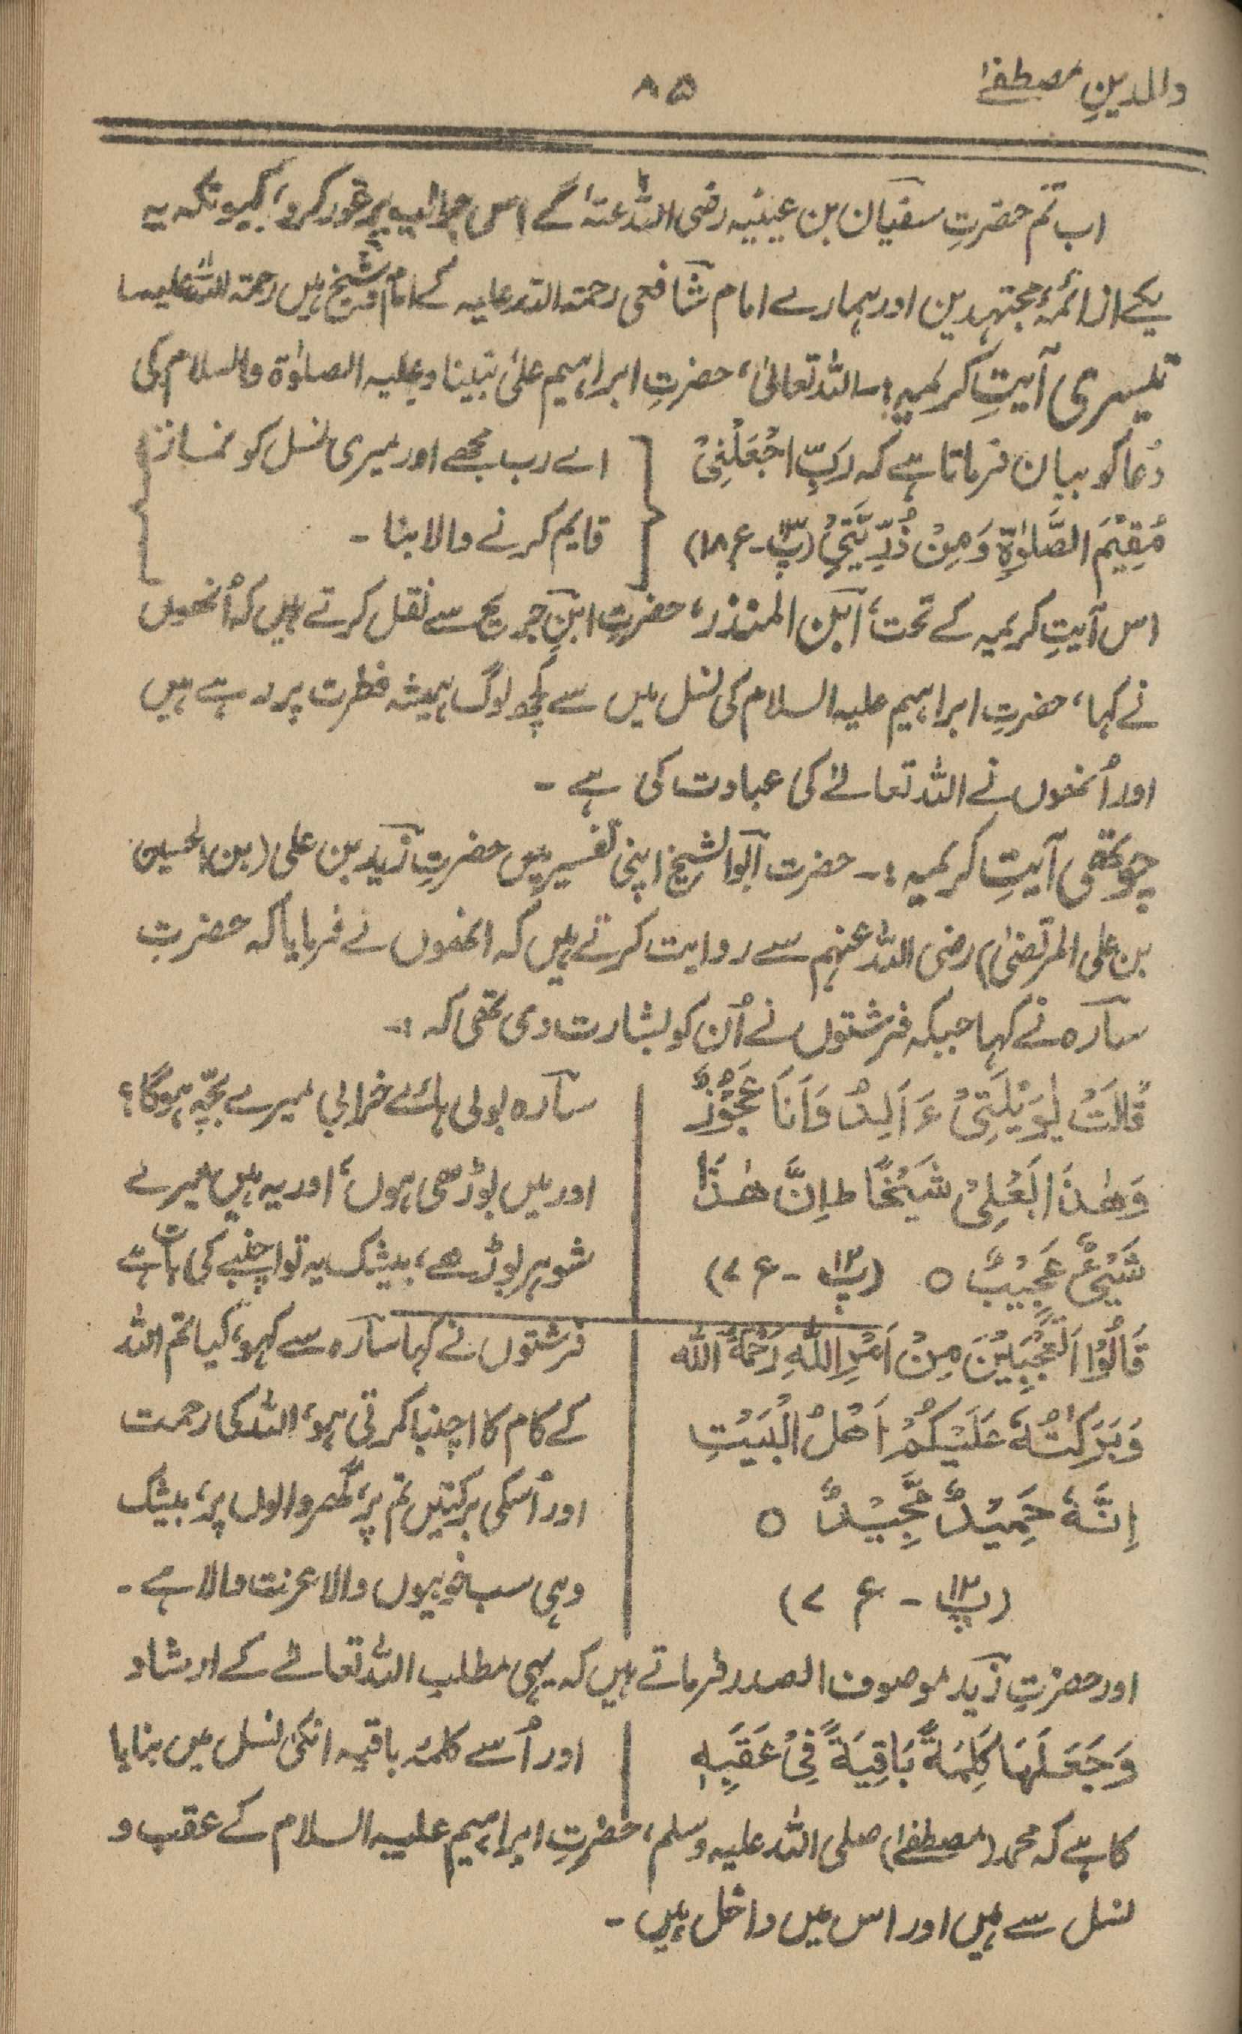 والدینِ مصطفےٰ
۸۵
اب تم حضرتِ سفیان بن عیینہ رضی اللہ عنہٗ کے اِس جواب پر غور کرو، کیونکہ یہ
یکے از ائمۂ مجتہدین اور ہمارے امام شافعی رحمۃ اللہ علیہ کے امام و شیخ ہیں رحمۃ اللہ علیہما
تیسری آیتِ کریمہ :۔ اللہ تعالیٰ، حضرتِ ابراہیم علیٰ نبینا و علیہ الصلوٰۃ والسلام کی
دُعا کو بیان فرماتا ہے کہ رَبِّ اجْعَلْنِیْ
مُقِیْمَ الصَّلٰوۃِ وَمِنْ ذُرِّیَّتِیْ (پ۱۳۔ ع۱۸)
اے رب مجھے اور میری نسل کو نماز
قایم کرنے والا بنا ۔
اس آیتِ کریمہ کے تحت، ابن المنذر، حضرتِ ابنِ جریج سے نقل کرتے ہیں کہ اُنھوں
نے کہا، حضرتِ ابراہیم علیہ السلام کی نسل میں سے کچھ لوگ ہمیشہ فطرت پر رہے ہیں
اور اُنھوں نے اللہ تعالےٰ کی عبادت کی ہے ۔
چوتھی آیتِ کریمہ :۔ حضرت ابوالشیخ اپنی تفسیر میں حضرتِ زید بن علی (بن الحسین
بن علی المرتضیٰ) رضی اللہ عنہم سے روایت کرتے ہیں کہ انھوں نے فرمایا کہ حضرتِ
سارہ نے کہا جبکہ فرشتوں نے اُن کو بشارت دی تھی کہ :۔
قَالَتْ یٰوَیْلَتٰیْ ءَاَلِدُ وَاَنَا عَجُوْزٌ
وَھٰذَا بَعْلِیْ شَیْخًا ط اِنَّ ھٰذَا
شَیْئٌ عَجِیْبٌ ○ (پ۱۲ ۔ ع ۷)
سارہ بولی ہائے خرابی میرے بچّہ ہوگا؟
اور میں بوڑھی ہوں، اور یہ ہیں میرے
شوہر بوڑھے، بیشک یہ تو اچنبے کی بات ہے
قَالُوْا اَتَعْجَبِیْنَ مِنْ اَمْرِ اللّٰہِ رَحْمَۃُ اللّٰہ
وَبَرَکٰتُہٗ عَلَیْکُمْ اَھْلَ الْبَیْتِ
اِنَّہٗ حَمِیْدٌ مَّجِیْدٌ ○
(پ۱۲ ۔ ع ۷)
فرشتوں نے کہا سارہ سے کہو، کیا تم اللہ
کے کام کا اچنبا کرتی ہو، اللہ کی رحمت
اور اُسکی برکتیں تم پر، گھر والوں پر، بیشک
وہی سب خوبیوں والا عزت والا ہے ۔
اور حضرتِ زید موصوف الصدر فرماتے ہیں کہ یہی مطلب اللہ تعالےٰ کے ارشاد
وَجَعَلَھَا کَلِمَۃً بَاقِیَۃً فِیْ عَقَبِہٖ
اور اُسے کلمۂ باقیہ انکی نسل میں بنایا
کا ہے کہ محمد (مصطفےٰ) صلی اللہ علیہ وسلم، حضرتِ ابراہیم علیہ السلام کے عقب و
نسل سے ہیں اور اس میں داخل ہیں ۔